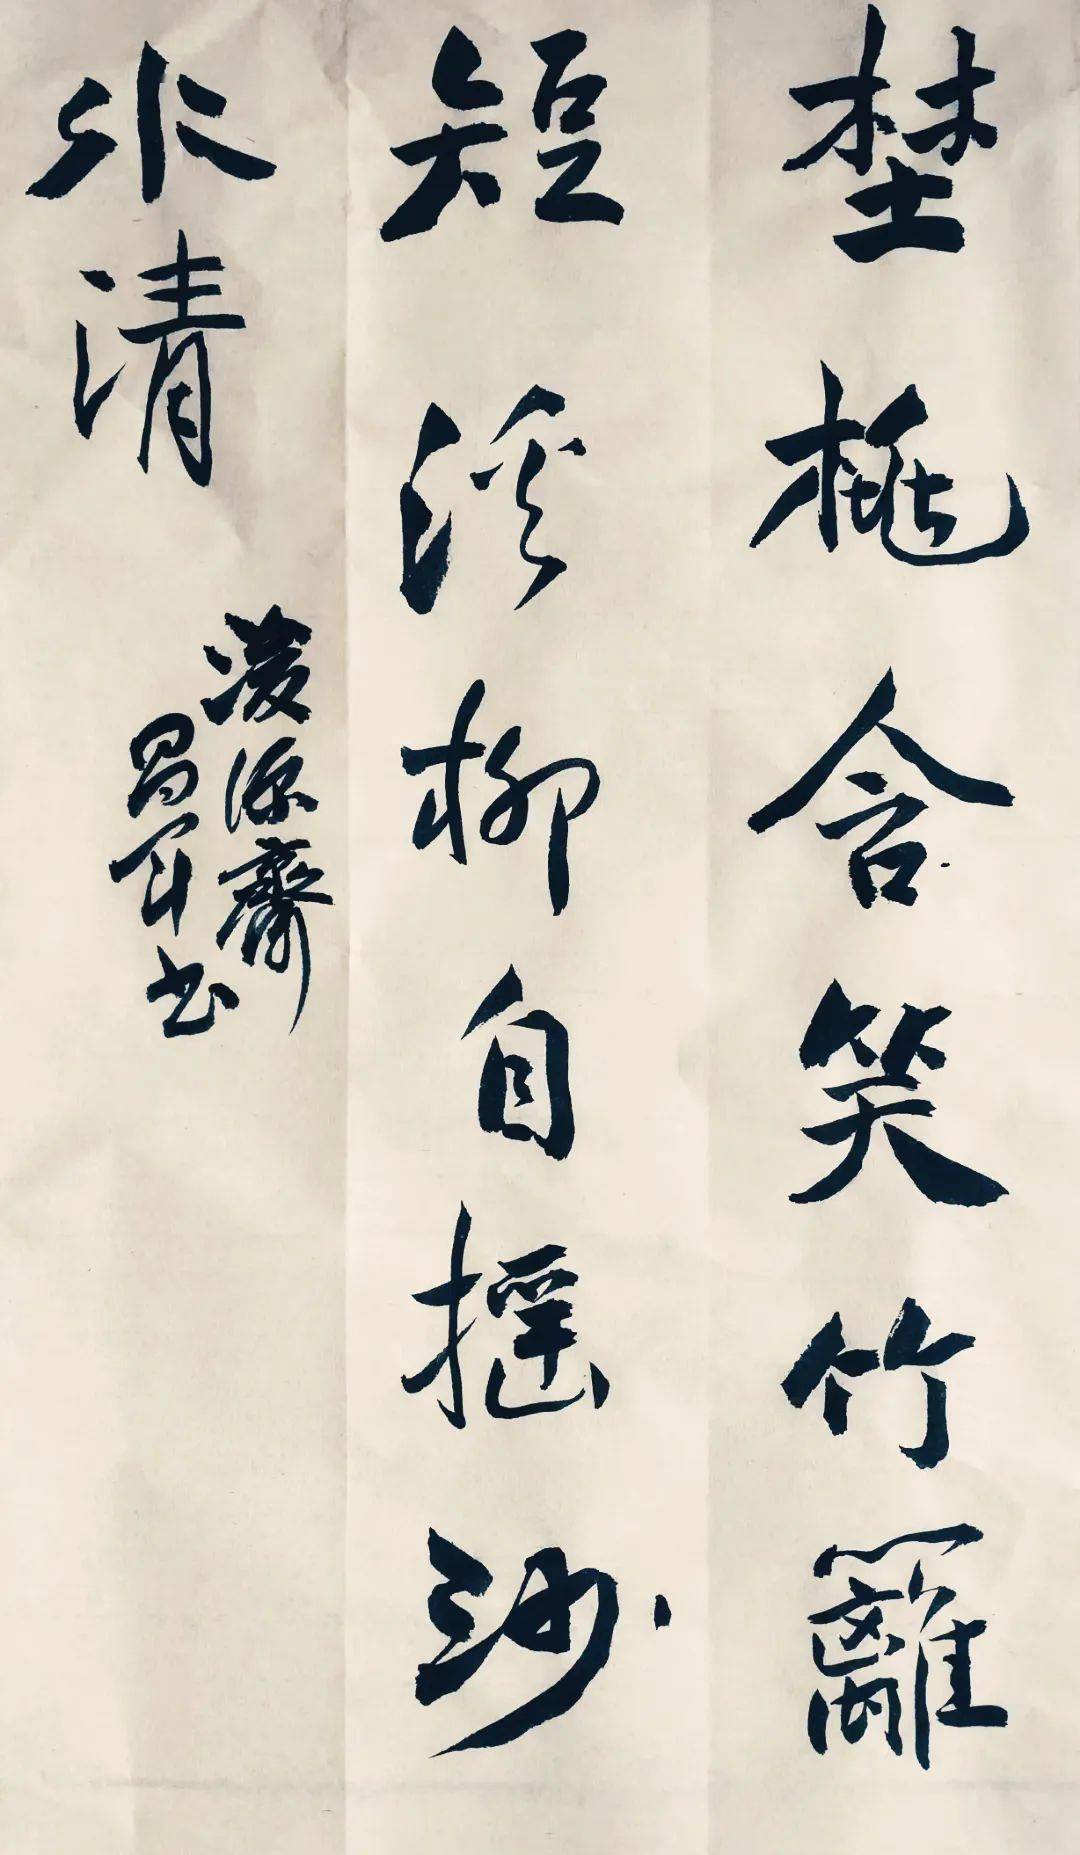 埜桃含笑竹籬
短溪柳自摇沙
水清
源齋
昌军书